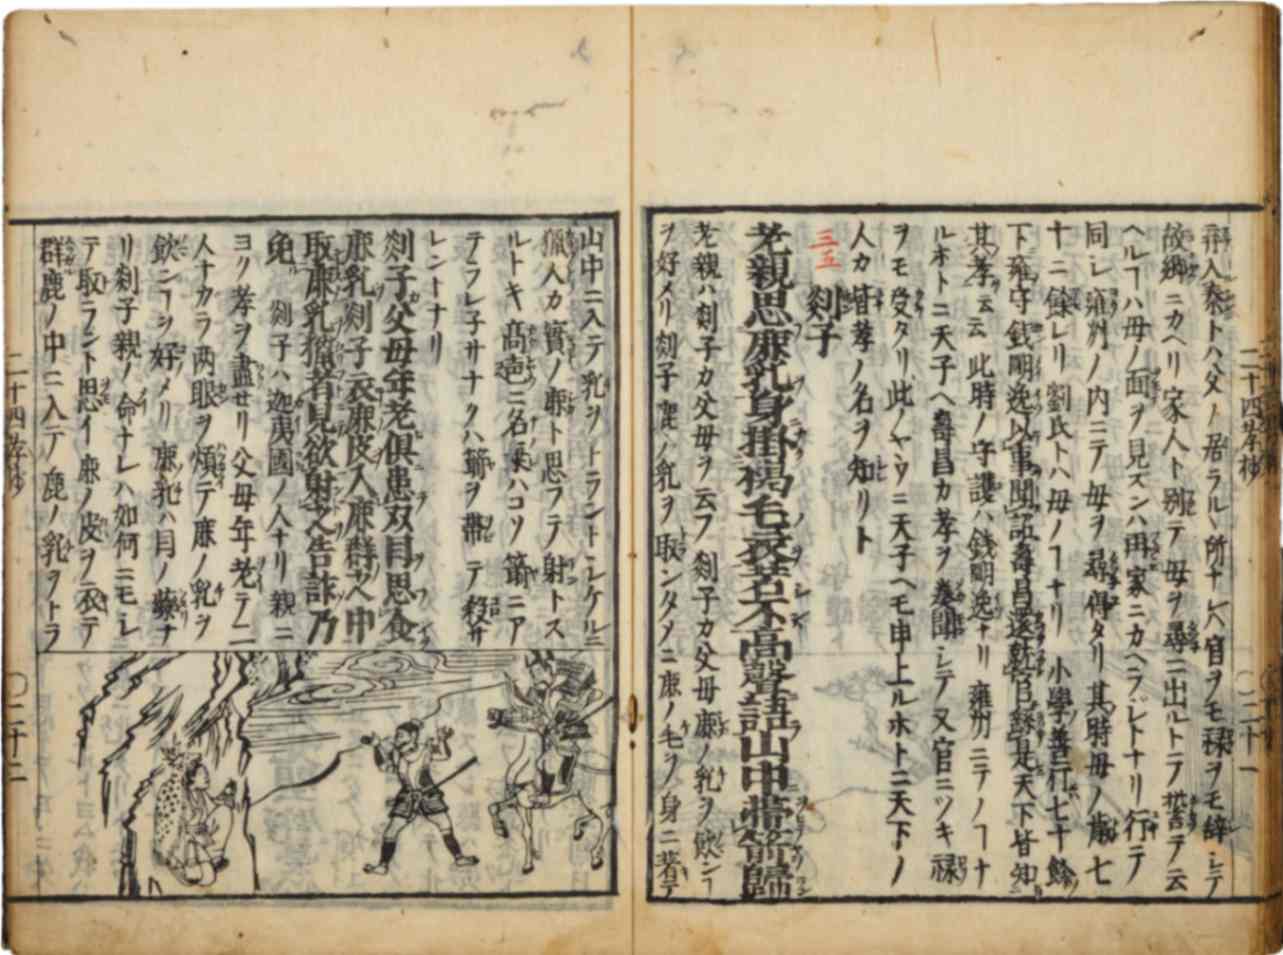 辞入秦トハ父ノ居ラルヽ所ナレハ官ヲモ禄ヲモ辞シテ
故郷ニカヘリ家人ト別テ母ヲ尋ニ出ルトテ誓テ云
ヘルヿハ母ノ面ヲ見ズンハ再家ニカヘラレトナリ行テ
同シ雍州ノ内ニテ母ヲ尋得タリ其時母ノ歳七
十ニ餘レリ劉氏トハ母ノヿナリ 小學善行七十餘
下雍守錢明逸以事聞詔壽昌還就官繇是天下皆知
其孝云云此時ノ守護ハ錢明逸ナリ雍州ニテノヿナ
ルホトニ天子ヘ壽昌カ孝ヲ奏聞シテ又官ニツキ禄
ヲモ受タリ此ノヤウニ天子ヘモ申上ルホトニ天下ノ
人カ皆孝ノ名ヲ知リト
三五
剡子
老親思鹿乳身掛褐毛衣若不高聲語山中帶箭歸
老親ハ剡子カ父母ヲ云フ剡子カ父母鹿ノ乳ヲ飲ンヿ
ヲ好メリ剡子鹿ノ乳ヲ取ンタメニ鹿ノ毛ヲ身ニ著テ
二十四孝抄
〇二十一
山中ニ入テ乳ヲトラントシケルニ
獵人カ實ノ鹿ト思フテ射トス
ルトキ高声ニ名乗ハコソ箭ニア
テラレ子サナクハ箭ヲ帶テ殺サ
レントナリ
剡子父母年老俱患双目思食
鹿乳剡子衣鹿皮入鹿群之中
取鹿乳獵者見欲射之告詐乃
免 剡子ハ迦夷國ノ人ナリ親ニ
ヨク孝ヲ盡セリ父母年老テ二
人ナカラ两眼ヲ煩テ鹿ノ乳ヲ
飲ンヿヲ好メリ鹿乳ハ目ノ藥ナ
リ剡子親ノ命ナレハ如何ニモシ
テ取ラント思イ鹿ノ皮ヲ衣テ
群鹿ノ中ニ入テ鹿ノ乳ヲトラ
二十四孝抄
〇二十二